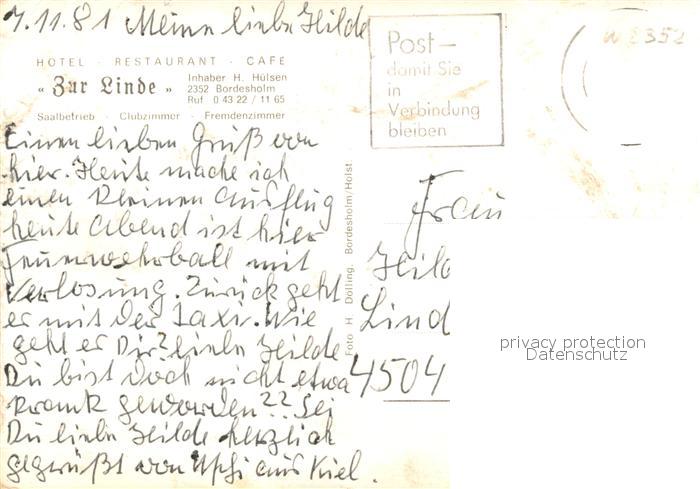 7.11.81 Meine liebe Hilde
HOTEL · RESTAURANT · CAFE
« Zur Linde »
Inhaber H. Hülsen
2352 Bordesholm
Ruf 0 43 22 / 11 65
Saalbetrieb · Clubzimmer · Fremdenzimmer
Einen lieben Gruß von
hier. Heute mache ich
einen kleinen Ausflug
heute Abend ist hier
Feuerwehrball mit
Verlosung. Zurück geht
er mit der Taxi. Wie
geht er Dir? liebe Hilde
Du bist doch nicht etwa
krank geworden?? Sei
Du liebe Hilde herzlich
gegrüßt von Uschi aus Kiel.
Foto H. Dölling, Bordesholm/Holst.
Post –
damit Sie
in
Verbindung
bleiben
2352
Frau
Hild
Lind
4504
privacy protection
Datenschutz